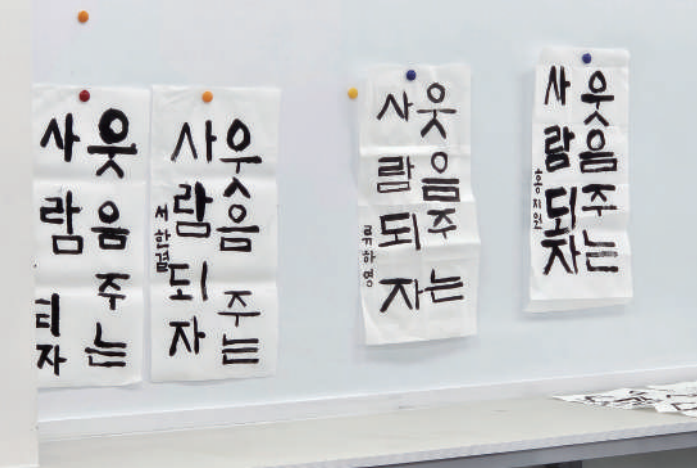 웃음주는
사람되자
웃음주는
사람되자
서한결
웃음주는
사람되자
류하영
웃음주는
사람되자
홍지원